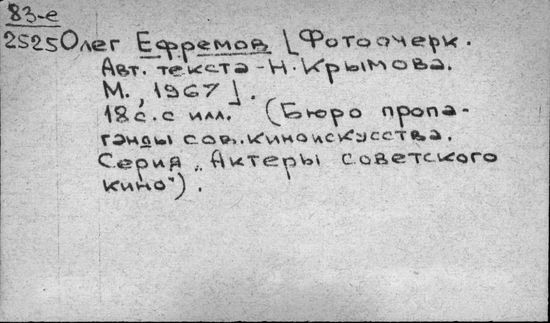 83-е
2525 Олег Ефремов [Фотоочерк.
Авт. текста - Н. Крымова.
М., 1967].
18 с. с илл. (Бюро пропа-
ганды сов. киноискусства.
Серия „Актеры советского
кино").